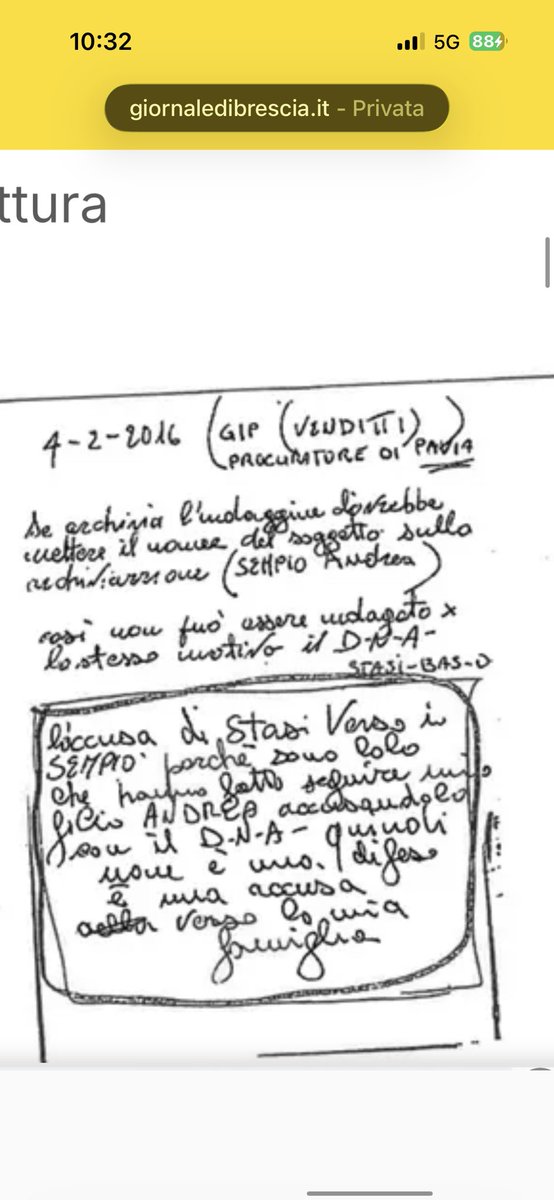 10:32
5G 88
giornaledibrescia.it - Privata
ttura
4-2-2016 (GIP (VENDITTI)
PROCURATORE DI PAVIA)
Se archivia l'indagine dovrebbe
mettere il nome del soggetto sulla
archiviazione (SEMPIO Andrea)
così non può essere indagato x
lo stesso motivo il D-N-A-
STASI-BAS-O
l'accusa di Stasi Verso i
SEMPIO perchè sono loro
che hanno fatto seguire mio
figlio ANDREA accusandolo
con il D-N-A- quindi
non è una difesa
è una accusa
verso la mia
famiglia